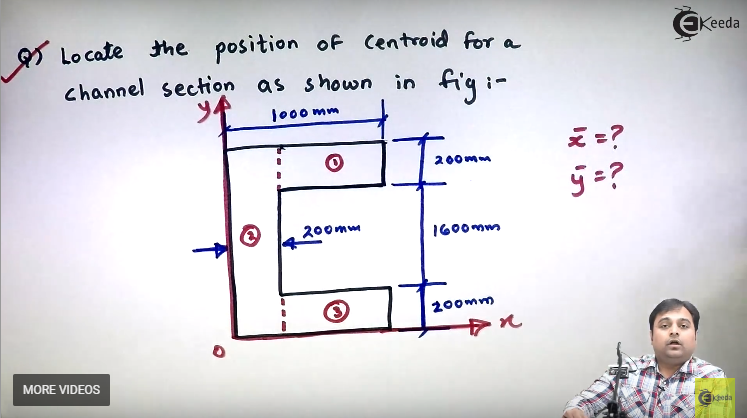 Ekeeda
Q) Locate the position of centroid for a
channel section as shown in fig :-
y
1000mm
x̄ =?
①
200mm
ȳ =?
②
200mm
1600mm
③
200mm
x
0
MORE VIDEOS
Ekeeda